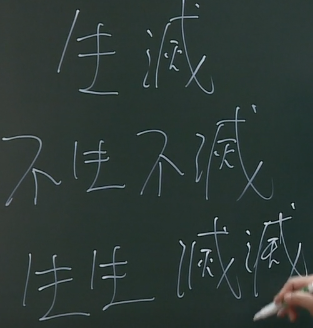 生滅
不生不滅
生生滅滅